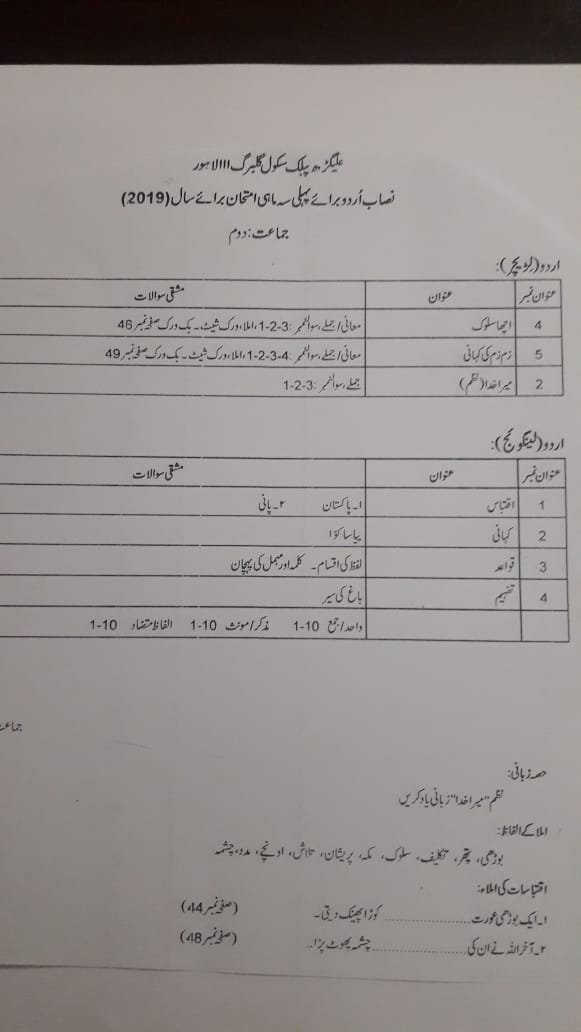 علیگڑھ پبلک سکول گلبرگ III لاہور
نصاب اُردو برائے پہلی سہ ماہی امتحان برائے سال (2019)
جماعت: دوم
اردو (لٹریچر):
عنوان نمبر عنوان مشقی سوالات
4 اچھا سلوک معانی/جملے، سوالنمبر :3-2-1، املا، ورک شیٹ۔ بک ورک صفحہ نمبر 46
5 زم زم کی کہانی معانی/جملے، سوالنمبر :4-3-2-1، املا، ورک شیٹ۔ بک ورک صفحہ نمبر 49
2 میرا خدا (نظم) جملے، سوالنمبر :3-2-1
اردو (لینگوئج):
عنوان نمبر عنوان مشقی سوالات
1 اقتباس ۱۔ پاکستان ۲۔ پانی
2 کہانی پیاسا کوّا
3 قواعد لفظ کی اقسام۔ کلمہ اور مہمل کی پہچان
4 تفہیم باغ کی سیر
واحد/جمع 10-1 مذکر/مونث 10-1 الفاظ متضاد 10-1
جماعت
حصہ زبانی:
نظم "میرا خدا" زبانی یاد کریں
املا کے الفاظ:
بوڑھی، پتھر، تکلیف، سلوک، مکہ، پریشان، تلاش، اونچے، مدد، چشمہ
اقتباسات کی املاء:
۱۔ ایک بوڑھی عورت .................... کوڑا پھینک دیتی۔ (صفحہ نمبر 44)
۲۔ آخر اللہ نے ان کی .................... چشمہ پھوٹ پڑا۔ (صفحہ نمبر 48)